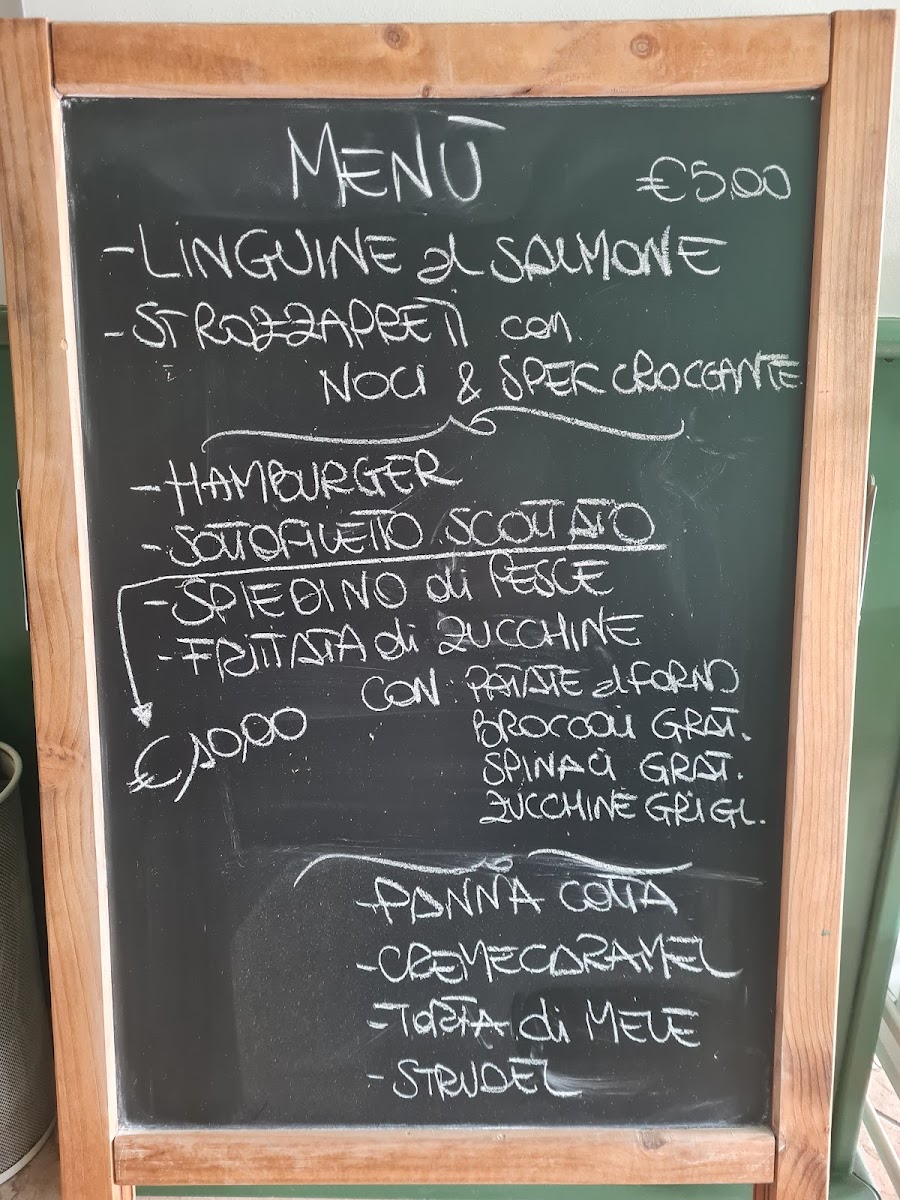 MENÙ
€5,00
- LINGUINE al SALMONE
- STROZZAPRETI con
NOCI & SPEK CROCCANTE
- HAMBURGER
- SOTTOFILETTO SCOTTATO
- SPIEDINO di PESCE
- FRITTATA di ZUCCHINE
CON: PATATE al FORNO
BROCCOLI GRAT.
SPINACI GRAT.
ZUCCHINE GRIGL.
€10,00
- PANNA COTTA
- CREMECARAMEL
- TORTA di MELE
- STRUDEL